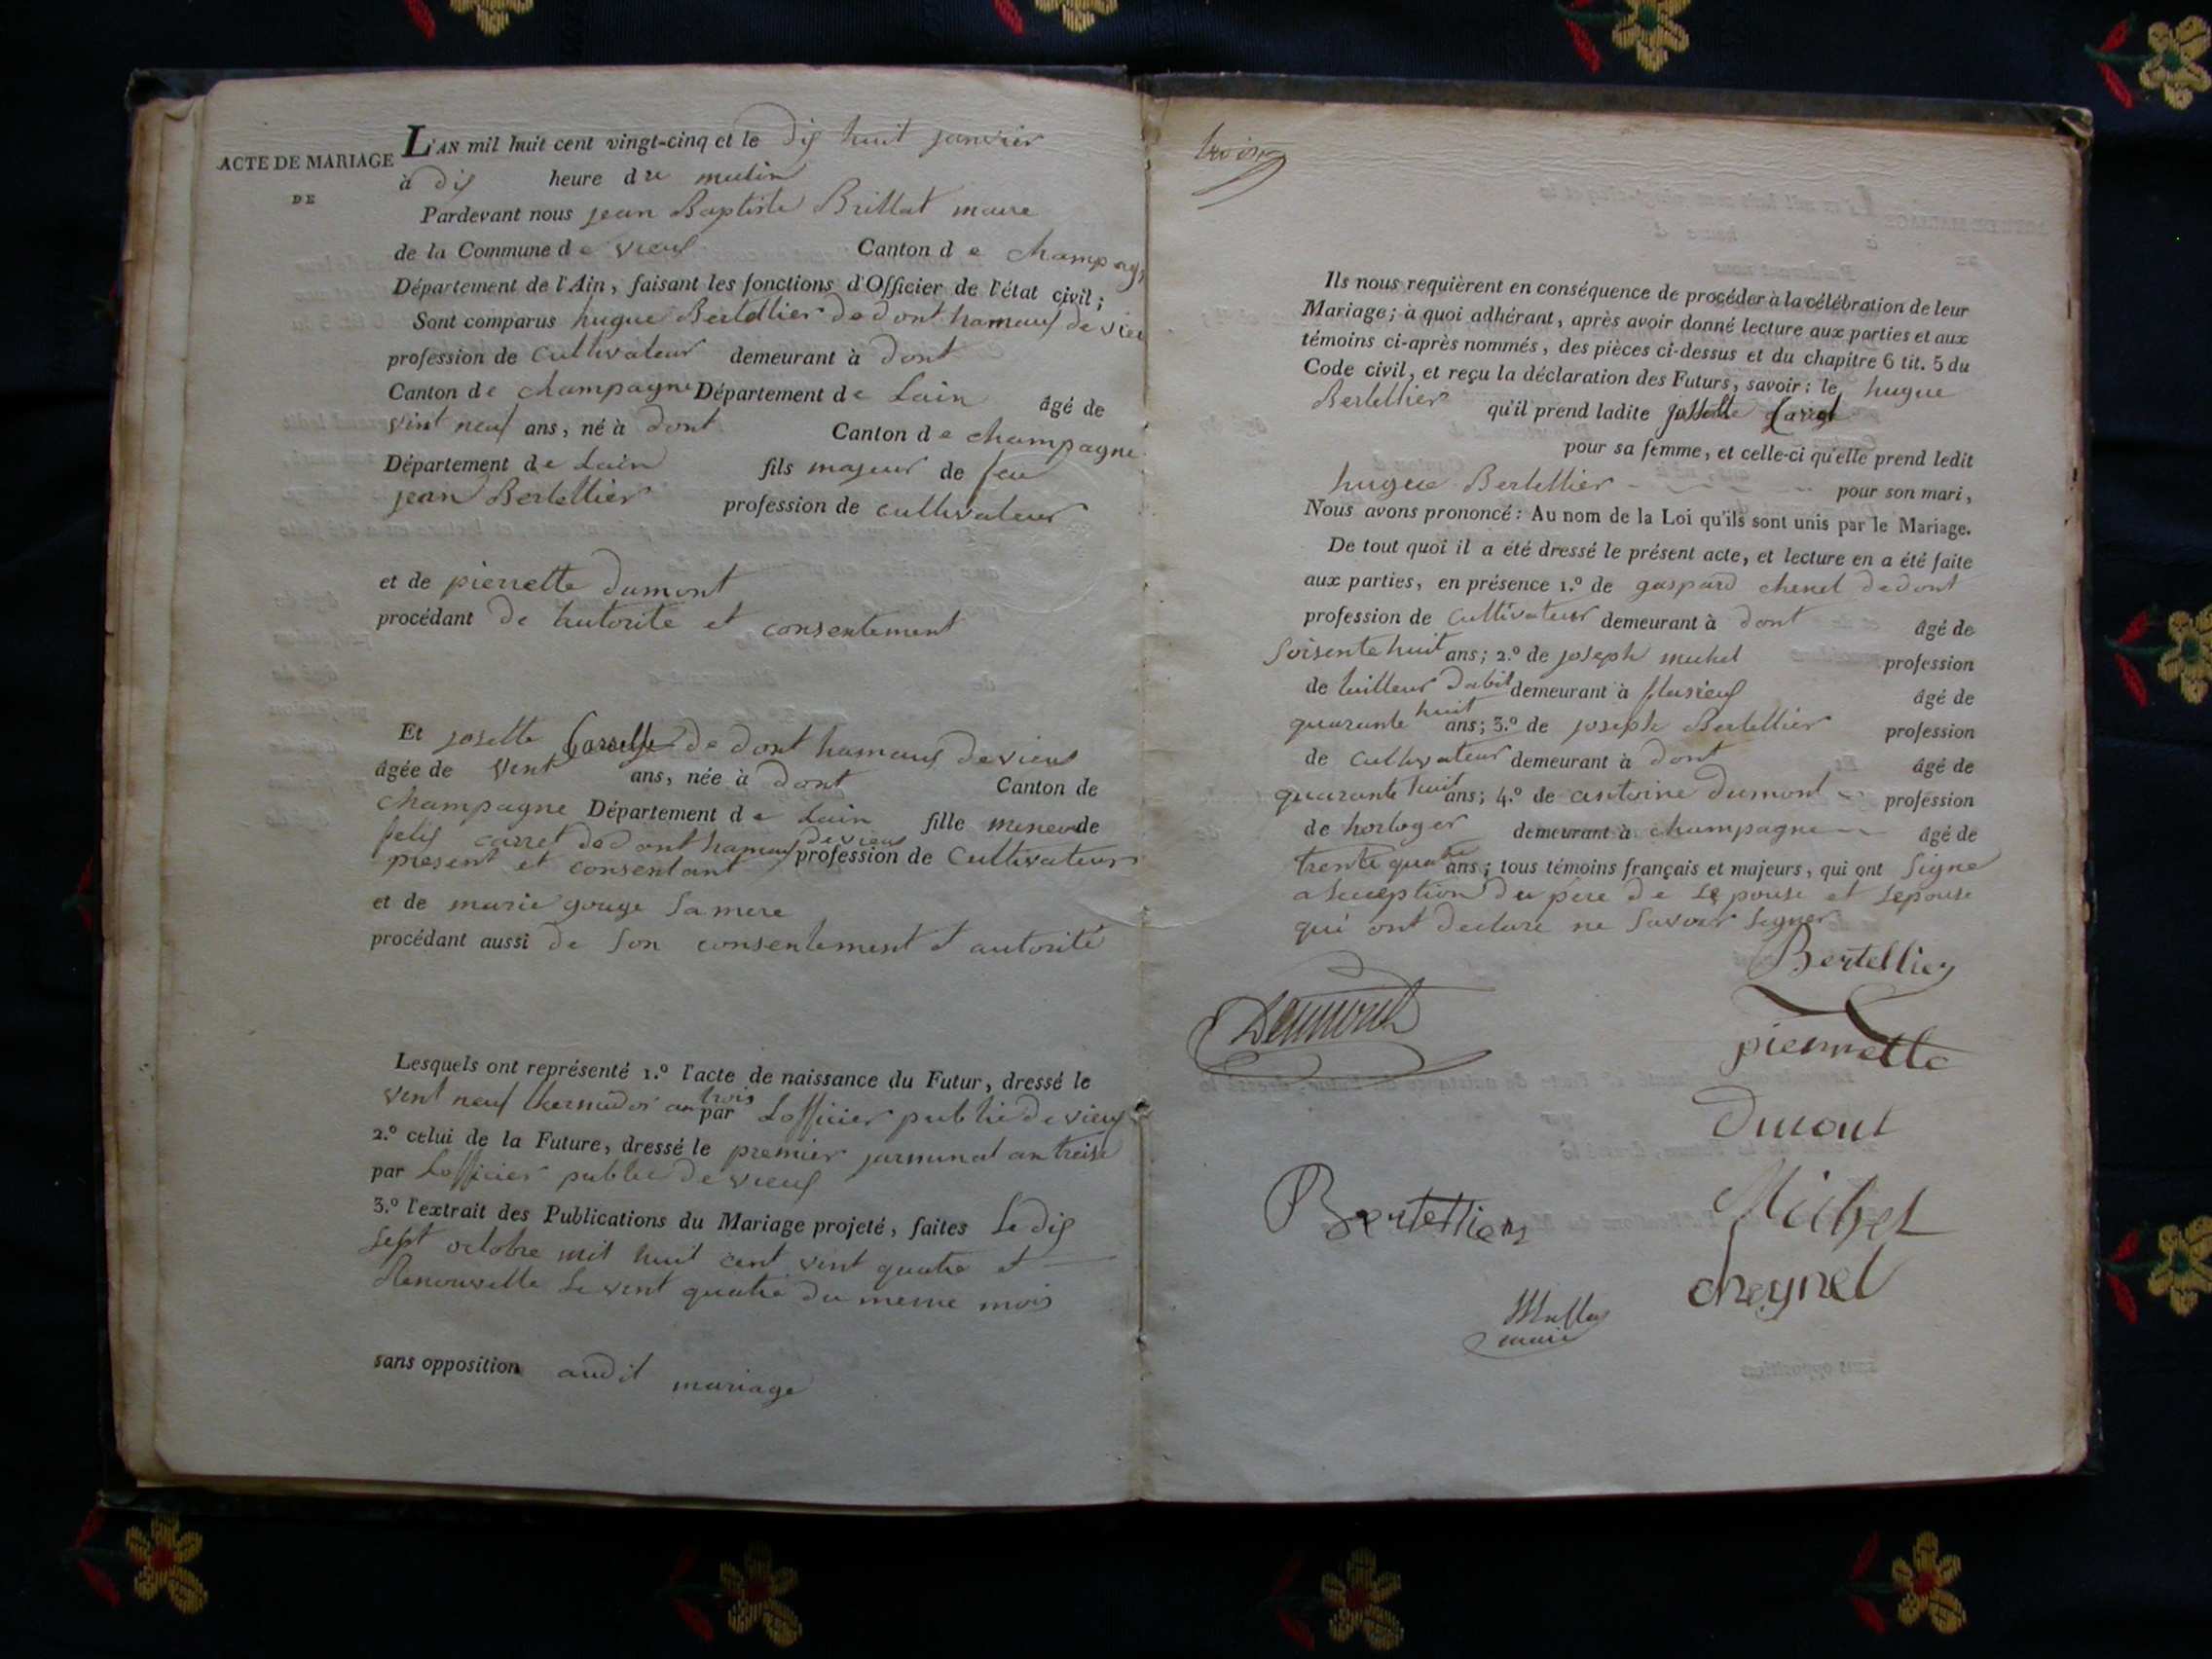 ACTE DE MARIAGE
DE
L'AN mil huit cent vingt-cinq et le dix huit janvier
à dix heure du matin
Pardevant nous jean Baptiste Brillat maire
de la Commune de vieux Canton de Champagne
Département de l'Ain, faisant les fonctions d'Officier de l'état civil;
Sont comparus hugue Bertellier de dont hameaux de vieu
profession de cultivateur demeurant à dont
Canton de champagne Département de Lain âgé de
vint neuf ans, né à dont Canton de champagne
Département de Lain fils majeur de feu
jean Bertellier profession de cultivateur
et de pierrette dumont
procédant de lautorite et consentement
Et josette de dont hameaux de vieux
âgée de vint ans, née à dont Canton de
champagne Département de Lain fille mineur de
felix carret de dont hameau de vieux
present et consentant profession de Cultivateur
et de marie gouge sa mere
procédant aussi de son consentement et autorité
Lesquels ont représenté 1.º l'acte de naissance du Futur, dressé le
vent neuf thermidor an trois par Lofficier public de vieux
2.º celui de la Future, dressé le premier jarminal an treise
par Lofficier public de vieux
3.º l'extrait des Publications du Mariage projeté, faites Le dix
sept octobre mil huit cent vint quatre et
Renouvelle Le vent quatre du meme mois
sans opposition audit mariage
trois
Ils nous requièrent en conséquence de procéder à la célébration de leur
Mariage; à quoi adhérant, après avoir donné lecture aux parties et aux
témoins ci-après nommés, des pièces ci-dessus et du chapitre 6 tit. 5 du
Code civil, et reçu la déclaration des Futurs, savoir: le hugue
Bertellier qu'il prend ladite josette Carret
pour sa femme, et celle-ci qu'elle prend ledit
hugue Bertellier pour son mari,
Nous avons prononcé: Au nom de la Loi qu'ils sont unis par le Mariage.
De tout quoi il a été dressé le présent acte, et lecture en a été faite
aux parties, en présence 1.º de gaspard chenel de dont
profession de Cultivateur demeurant à dont âgé de
soisente huit ans; 2.º de joseph michel profession
de tailleur dabit demeurant à âgé de
quarante huit ans; 3.º de joseph Bertellier profession
de cultivateur demeurant à dont âgé de
quarante huit ans; 4.º de antoine dumont profession
de horloger demeurant à champagne âgé de
trente quatre ans; tous témoins français et majeurs, qui ont signe
a leception du pere de Lepouse et Lepouse
qui ont declare ne savoir signer
Bertellier
Dumont
pierrette
Dumont
Bertellier
Michel
cheynel
maire